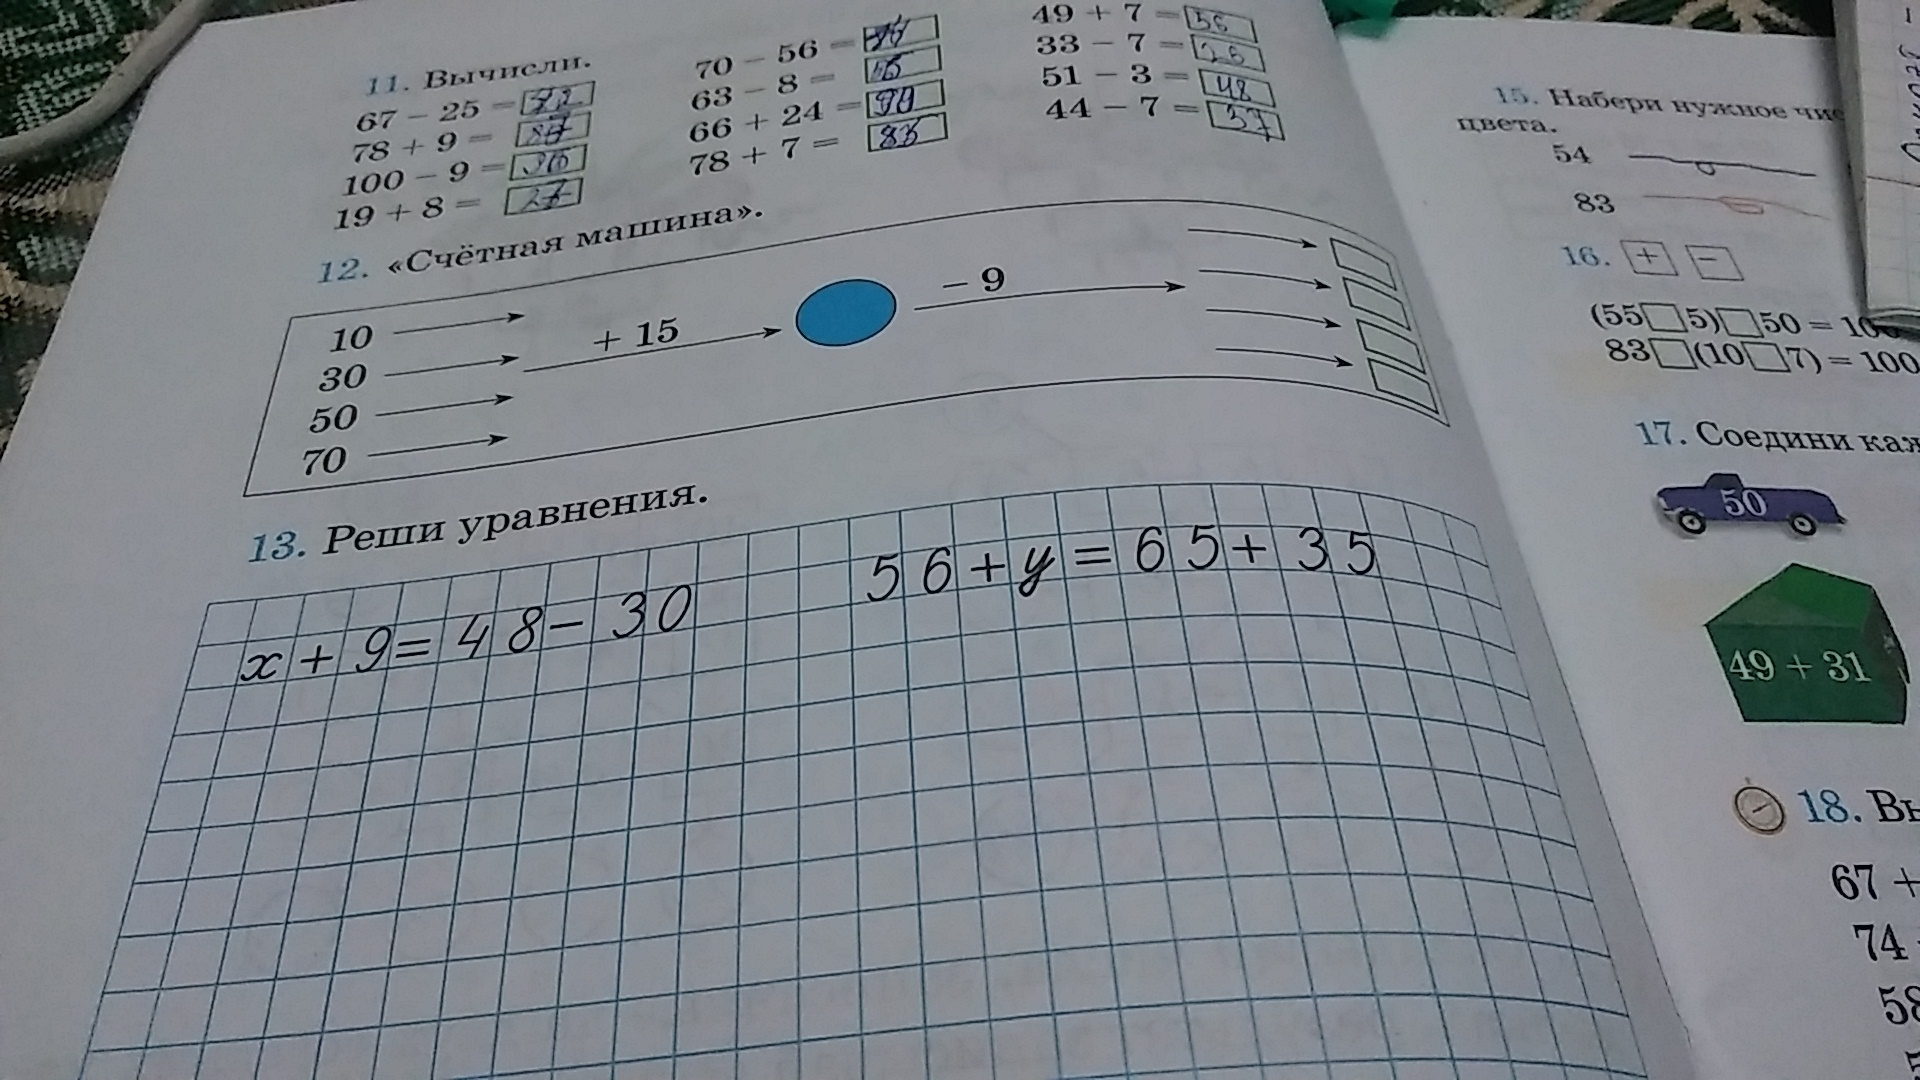 11. Вычисли.
67 − 25 =
78 + 9 =
100 − 9 =
19 + 8 = 27
70 − 56 =
63 − 8 =
66 + 24 = 90
78 + 7 = 85
49 + 7 = 56
33 − 7 =
51 − 3 = 48
44 − 7 = 37
12. «Счётная машина».
10
30
50
70
+ 15
− 9
13. Реши уравнения.
x + 9 = 48 − 30
56 + y = 65 + 35
15. Набери нужное
цвета.
54
83
16. + −
(55□5)□50 = 100
83□(10□7) = 100
17. Соедини
50
49 + 31
18.
67 +
74